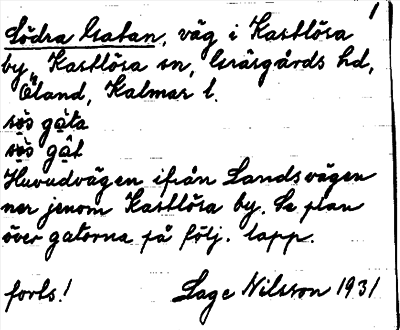 1
Södra Gatan, väg i Kastlösa
by, Kastlösa sn, Gräsgårds hd,
Öland, Kalmar l.
sös gata
sös gat
Huvudvägen ifrån Landsvägen
ner jenom Kastlösa by. Se plan
över gatorna på följ. lapp.
forts! Lage Nilsson 1931